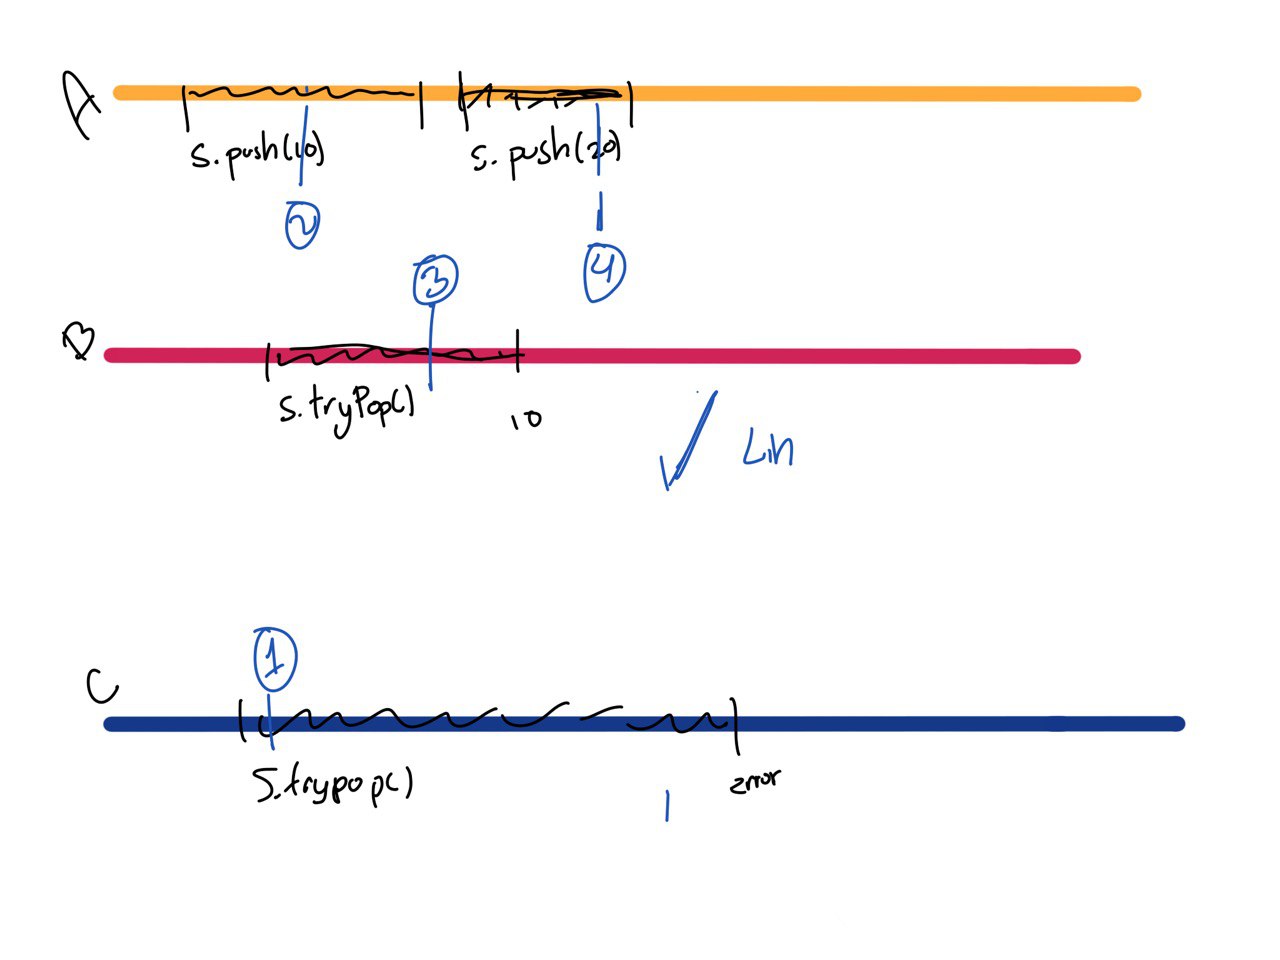 A
s.push(10)
s.push(20)
2
3
4
B
s.tryPop()
10
Lin
1
C
s.trypop()
error